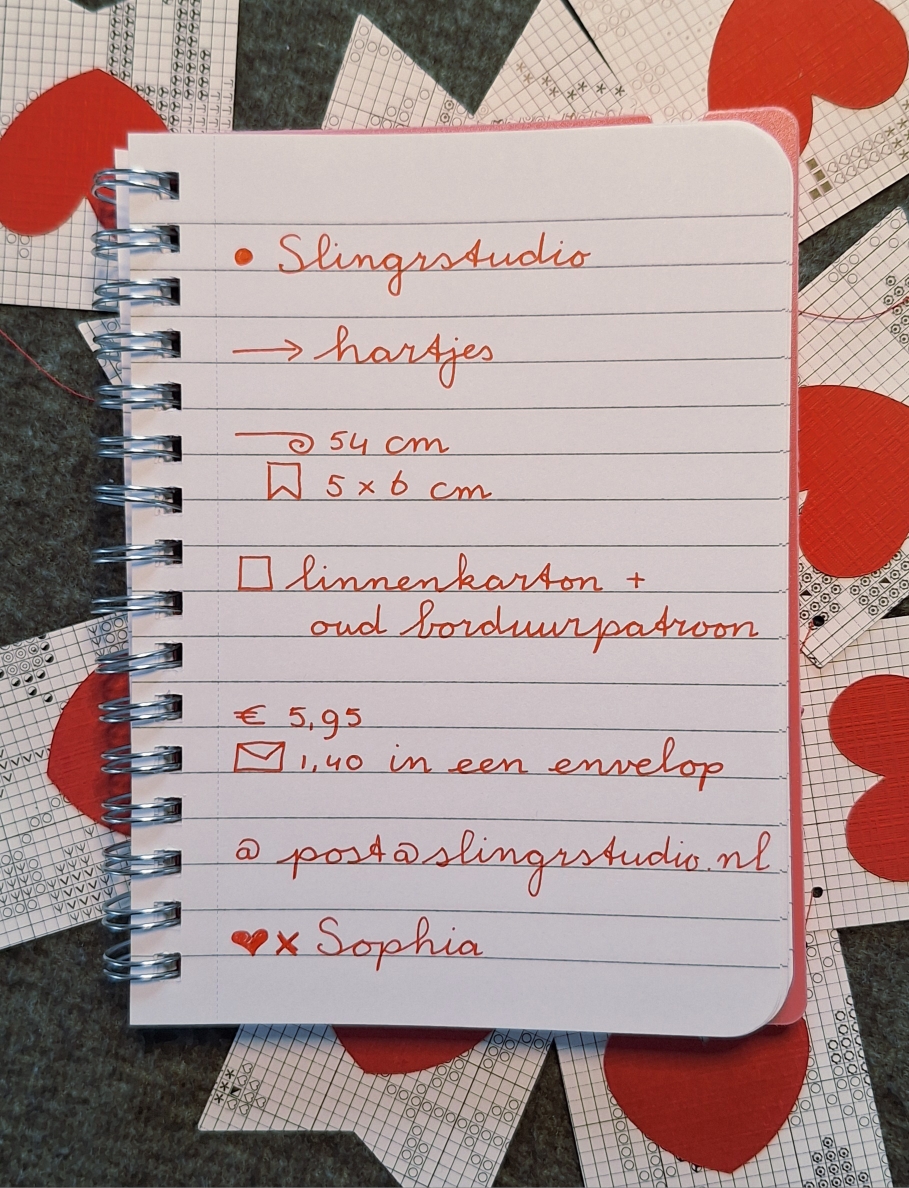 • Slingrstudio
→ hartjes
54 cm
5 x 6 cm
linnenkarton +
oud borduurpatroon
€ 5,95
1,40 in een envelop
@ post@slingrstudio.nl
♥ x Sophia